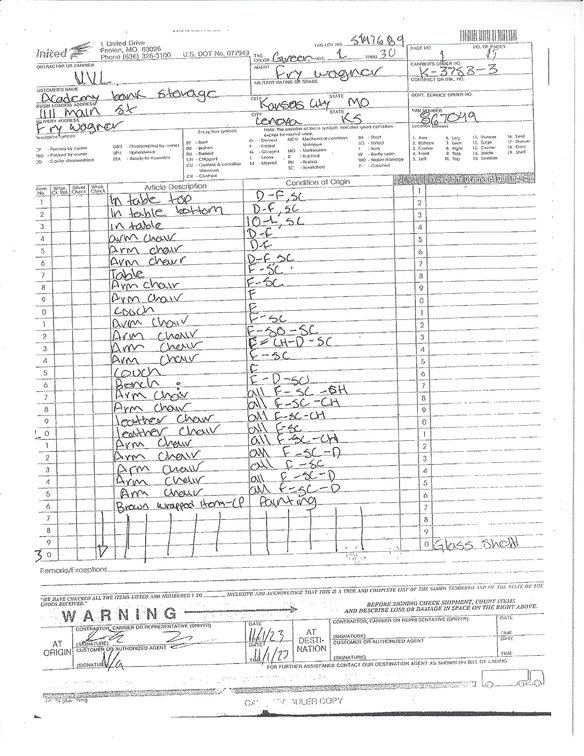 United
1 United Drive
Fenton, MO 63026
Phone (636) 326-3100 U.S. DOT No. 077949
TAG LOT NO. 5147689
TAG COLOR Green NOS. 1 THRU 30
PAGE NO. 1 NO. OF PAGES 15
CONTRACTOR OR CARRIER
UVL
AGENT
Fry wagner
CARRIER'S ORDER NO.
K-3788-3
MILITARY RATING OR GRADE
CONTRACT OR GBL NO.
CUSTOMER'S NAME
Academy bank storage
GOVT. SERVICE ORDER NO.
ORIGIN LOADING ADDRESS
1111 main st
CITY STATE
Kansas City MO
VAN NUMBER
867049
DELIVERY ADDRESS
Fry Wagner
CITY STATE
Lenexa KS
Descriptive symbols
Exception symbols
Location symbols
Note: The omission of these symbols indicates good condition except for normal wear.
CP - Packed by carrier
PBO - Packed by owner
CD - Carrier disassembled
DBO - Disassembled by owner
STA - Ready-to Assemble
BE - Bent
BR - Broken
BU - Burned
CH - Chipped
CU - Contents & condition Unknown
CR - Crushed
D - Dented
F - Faded
G - Gouged
L - Loose
M - Marred
MCU - Mechanical condition Unknown
MO - Motheaten
R - Rubbed
RU - Rusted
SC - Scratched
SH - Short
SO - Soiled
T - Torn
W - Badly worn
WD - Water damage
Z - Cracked
1. Arm 6. Leg 11. Veneer 16. Seat
2. Bottom 7. Rear 12. Edge 17. Drawer
3. Corner 8. Right 13. Center 18. Door
4. Front 9. Side 14. Inside 19. Shelf
5. Left 10. Top 15. Outside
Item No. Whse. Ck. Out Driver Check Whse. Check Article Description Condition at Origin
1 In table top D-F, SC 1
2 In table bottom D-F, SC 2
3 In table 10-L, SC 3
4 arm chair D-F 4
5 Arm chair D-F 5
6 Arm chair D-F SC 6
7 Table F-SC 7
8 Arm chair F-SC 8
9 Arm chair F 9
0 couch F 0
1 Arm chair F-SC 1
2 Arm chair F-SO-SC 2
3 Arm chair F-CH-D-SC 3
4 Arm chair F-SC 4
5 Couch F 5
6 Bench F-D-SO 6
7 Arm chair all F-SC-BH 7
8 Arm chair all F-SC-CH 8
9 leather chair all F-SC-CH 9
0 leather chair all F-SC 0
1 Arm chair all F-SC-CH 1
2 Arm chair all F-SC-D 2
3 Arm chair all F-SC 3
4 Arm chair all F-SC-D 4
5 Arm chair all F-SC-D 5
6 Brown wrapped item-CP Painting 6
7 7
8 8
9 9
30 0 Glass Shelf
Remarks/Exceptions
"WE HAVE CHECKED ALL THE ITEMS LISTED AND NUMBERED 1 TO ____ INCLUSIVE AND ACKNOWLEDGE THAT THIS IS A TRUE AND COMPLETE LIST OF THE GOODS TENDERED AND OF THE STATE OF THE GOODS RECEIVED."
WARNING
BEFORE SIGNING CHECK SHIPMENT, COUNT ITEMS
AND DESCRIBE LOSS OR DAMAGE IN SPACE ON THE RIGHT ABOVE.
AT ORIGIN
CONTRACTOR, CARRIER OR REPRESENTATIVE (DRIVER)
(SIGNATURE)
DATE
11/1/23
CUSTOMER OR AUTHORIZED AGENT
(SIGNATURE) N/a
DATE
11/1/23
AT DESTI-NATION
CONTRACTOR, CARRIER OR REPRESENTATIVE (DRIVER)
DATE
(SIGNATURE)
TIME
CUSTOMER OR AUTHORIZED AGENT
DATE
(SIGNATURE)
TIME
FOR FURTHER ASSISTANCE CONTACT OUR DESTINATION AGENT AS SHOWN ON BILL OF LADING